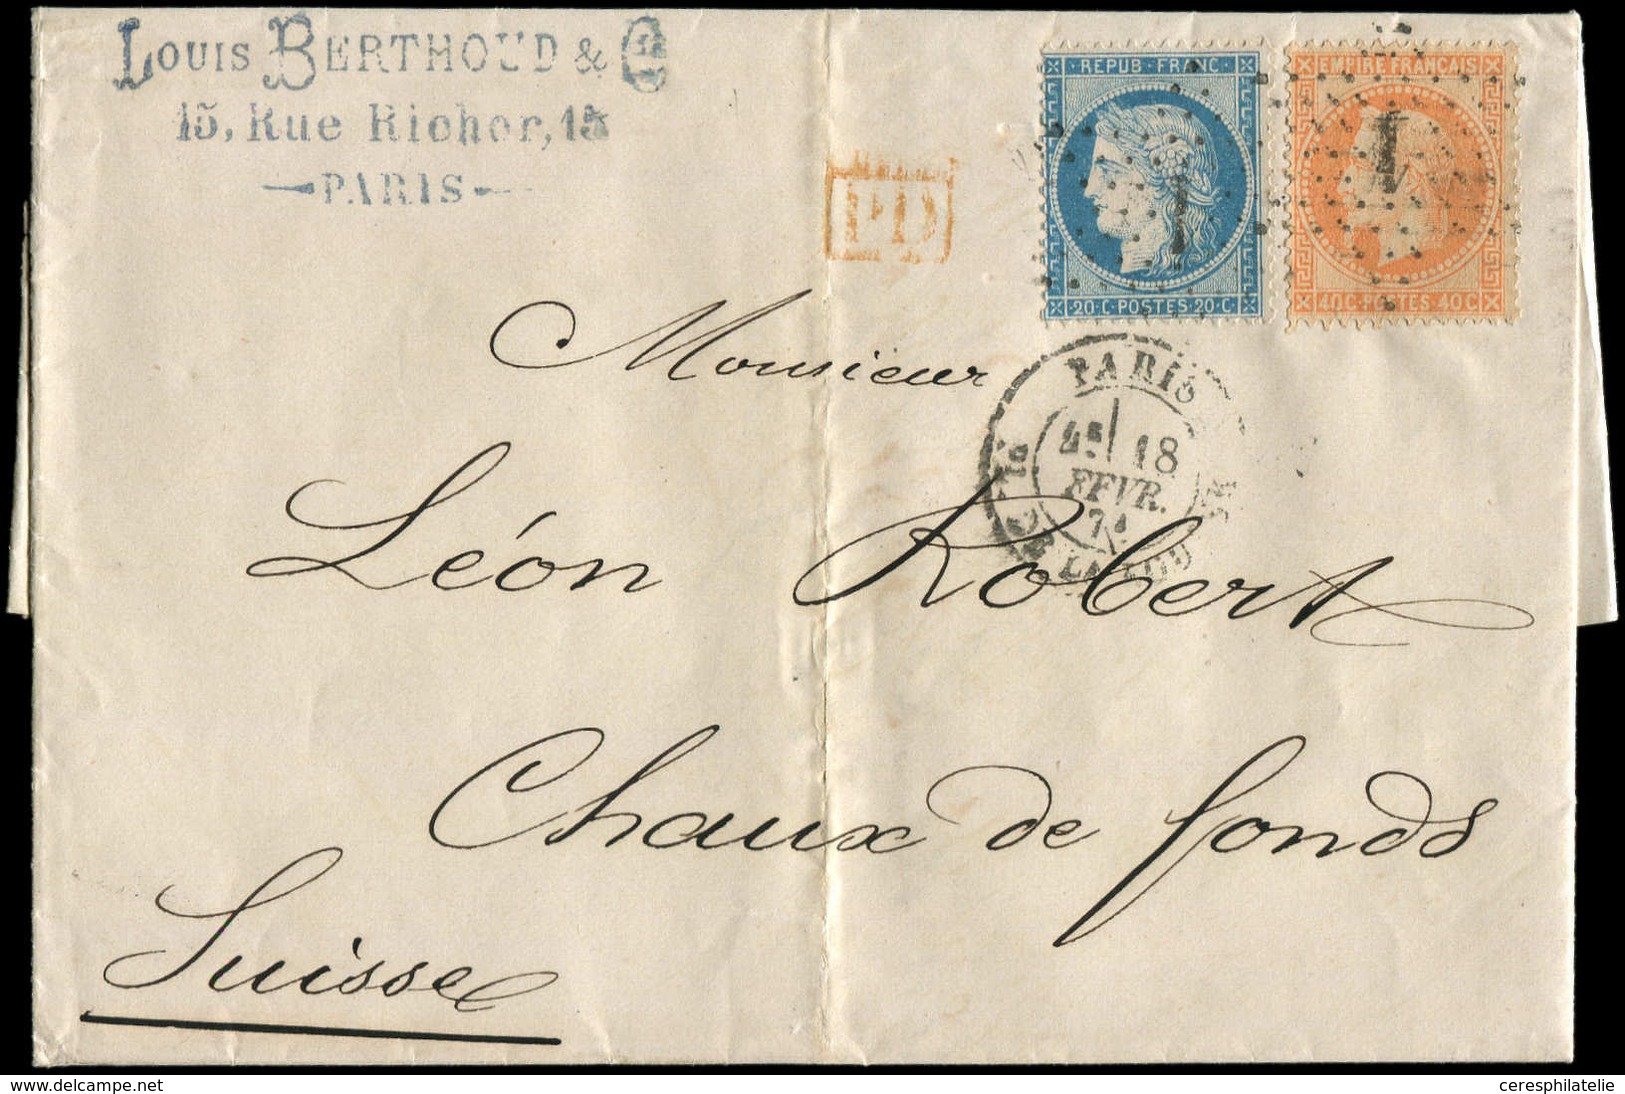 LOUIS BERTHOUD & Cie
15, Rue Richer, 15
PARIS
PD
REPUB. FRANC.
20.C. POSTES. 20.C.
1
EMPIRE FRANÇAIS
40C. POSTES. 40C
1
PARIS
4E 18
FEVR.
71
Monsieur
Léon Robert
Chaux de fonds
Suisse
www.delcampe.net
ceresphilatelie